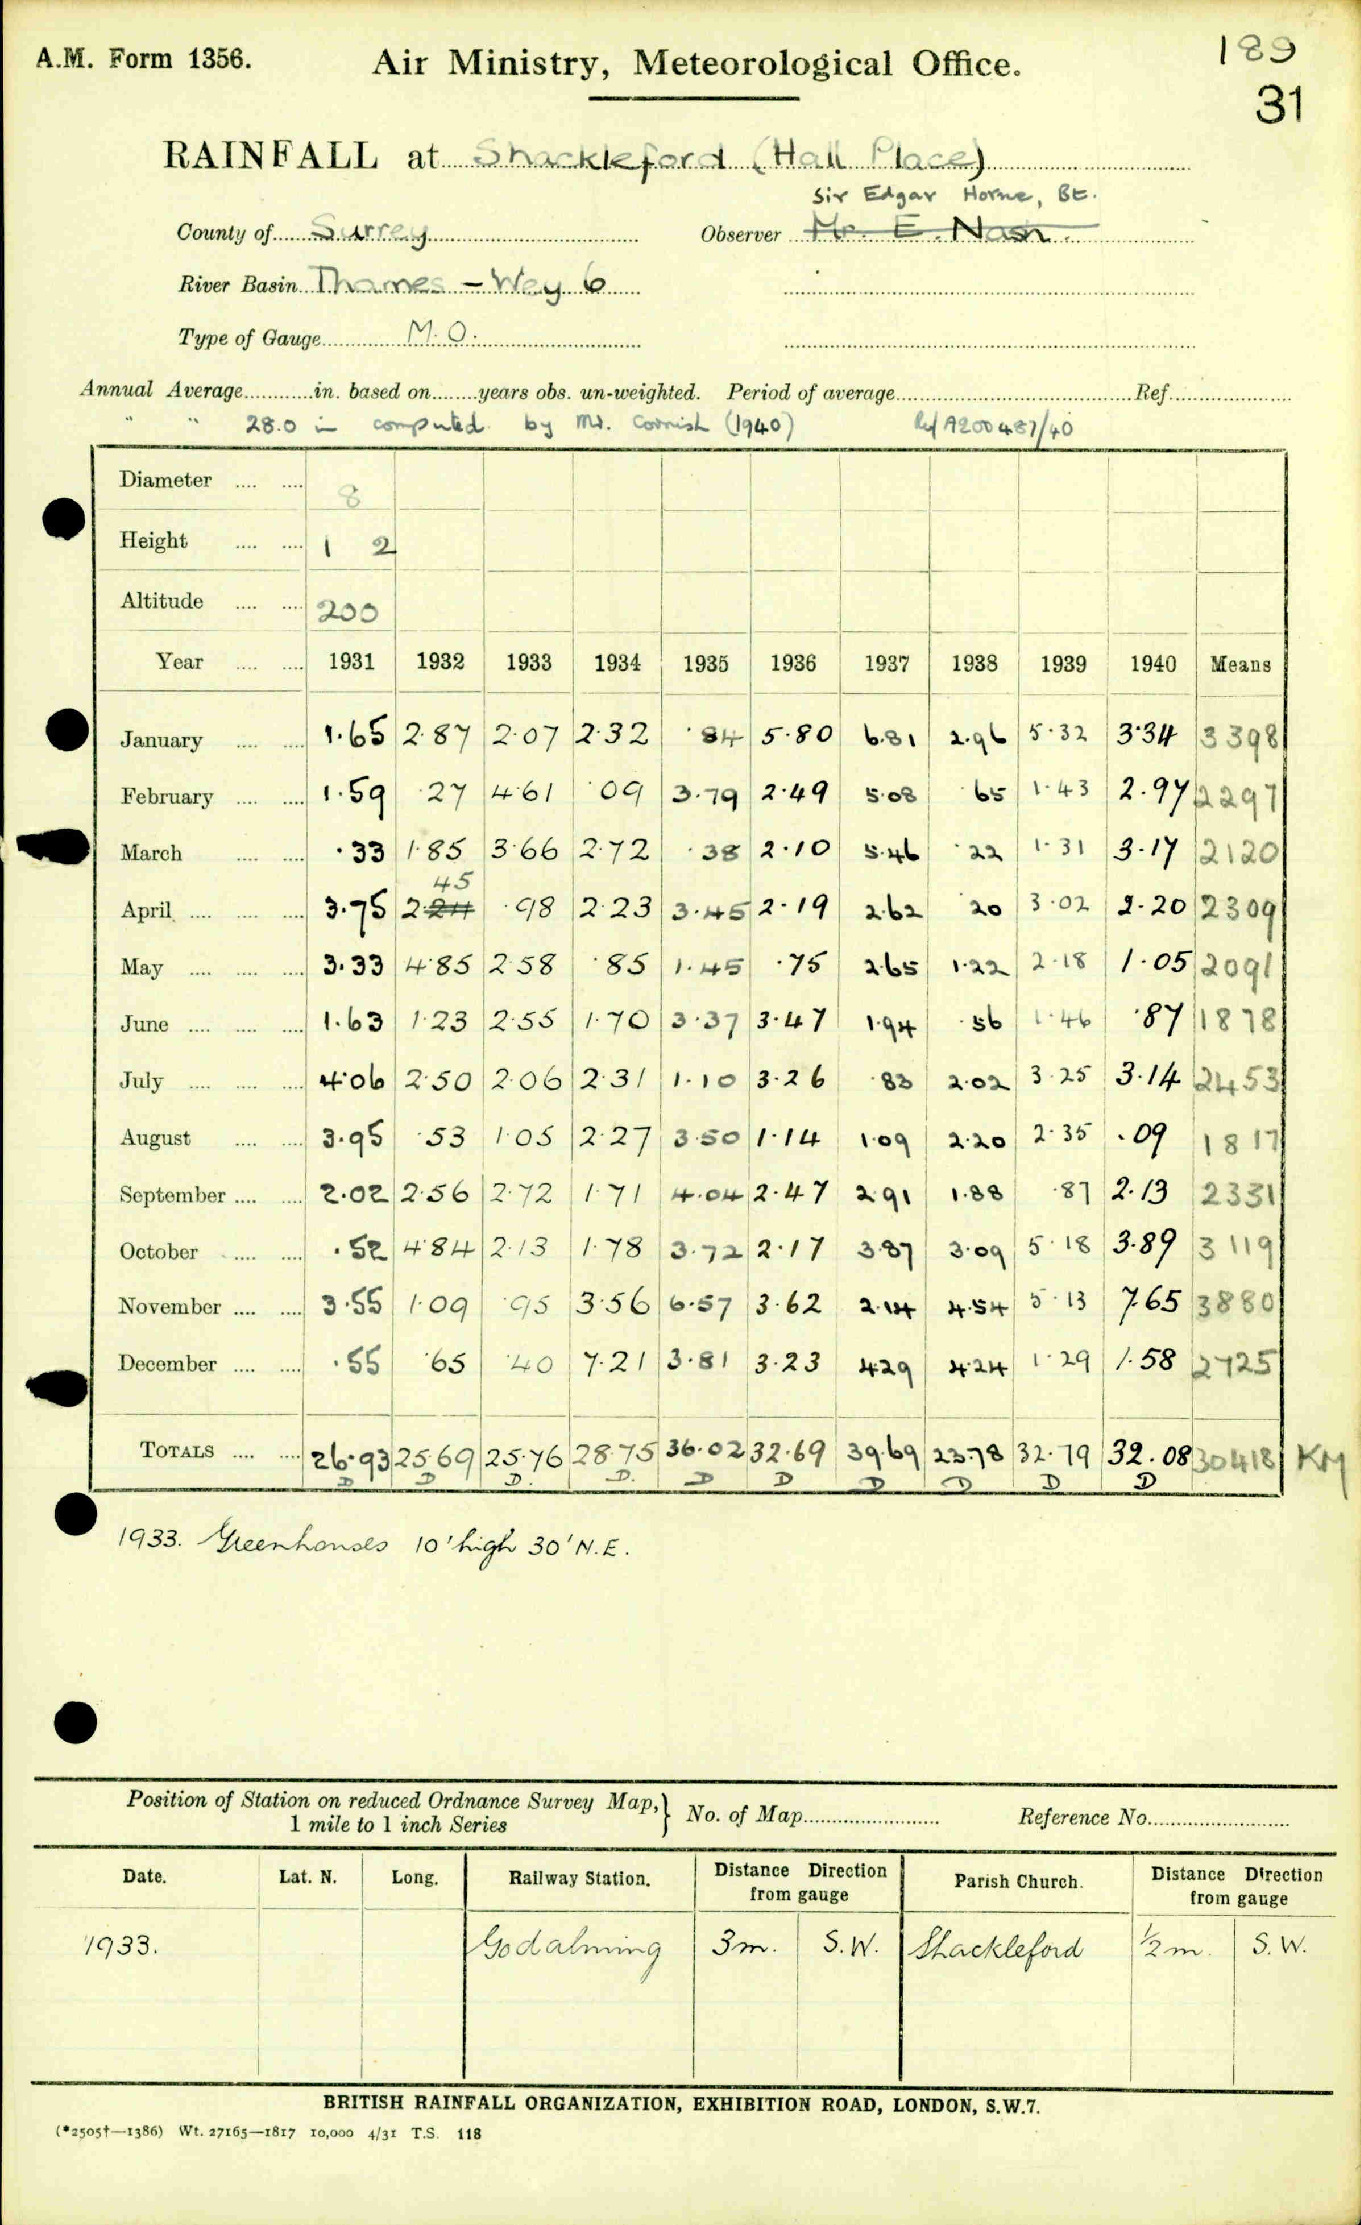 A.M. Form 1356.
Air Ministry, Meteorological Office.
189
31
RAINFALL at Shackleford (Hall Place)
Sir Edgar Horne, Bt.
County of Surrey Observer Mr. E. Nash.
River Basin Thames - Wey 6
Type of Gauge M.O.
Annual Average in. based on years obs. un-weighted. Period of average Ref.
" " 28.0 in computed by Mr. Cornish (1940) Ref A200487/40
Diameter 8
Height 1 2
Altitude 200
Year 1931 1932 1933 1934 1935 1936 1937 1938 1939 1940 Means
January 1.65 2.87 2.07 2.32 .84 5.80 6.81 2.96 5.32 3.34 3398
February 1.59 .27 4.61 .09 3.79 2.49 5.08 .65 1.43 2.97 2297
March .33 1.85 3.66 2.72 .38 2.10 5.46 .22 1.31 3.17 2120
45
April 3.75 2.24 .98 2.23 3.45 2.19 2.62 .20 3.02 2.20 2309
May 3.33 4.85 2.58 .85 1.45 .75 2.65 1.22 2.18 1.05 2091
June 1.63 1.23 2.55 1.70 3.37 3.47 1.94 .56 1.46 .87 1878
July 4.06 2.50 2.06 2.31 1.10 3.26 .83 2.02 3.25 3.14 2453
August 3.95 .53 1.05 2.27 3.50 1.14 1.09 2.20 2.35 .09 1817
September 2.02 2.56 2.72 1.71 4.04 2.47 2.91 1.88 .87 2.13 2331
October .52 4.84 2.13 1.78 3.72 2.17 3.87 3.09 5.18 3.89 3119
November 3.55 1.09 .95 3.56 6.57 3.62 2.14 4.54 5.13 7.65 3880
December .55 .65 .40 7.21 3.81 3.23 4.29 4.24 1.29 1.58 2725
TOTALS 26.93 25.69 25.76 28.75 36.02 32.69 39.69 23.78 32.79 32.08 30418 KM
D D D. D. D D D D D D
1933. Greenhouses 10' high 30' N.E.
Position of Station on reduced Ordnance Survey Map, } No. of Map Reference No.
1 mile to 1 inch Series
Date. Lat. N. Long. Railway Station. Distance Direction from gauge Parish Church. Distance Direction from gauge
1933. Godalming 3m. S.W. Shackleford ½m. S.W.
BRITISH RAINFALL ORGANIZATION, EXHIBITION ROAD, LONDON, S.W.7.
(*2505†—1386) Wt. 27165—1817 10,000 4/31 T.S. 118